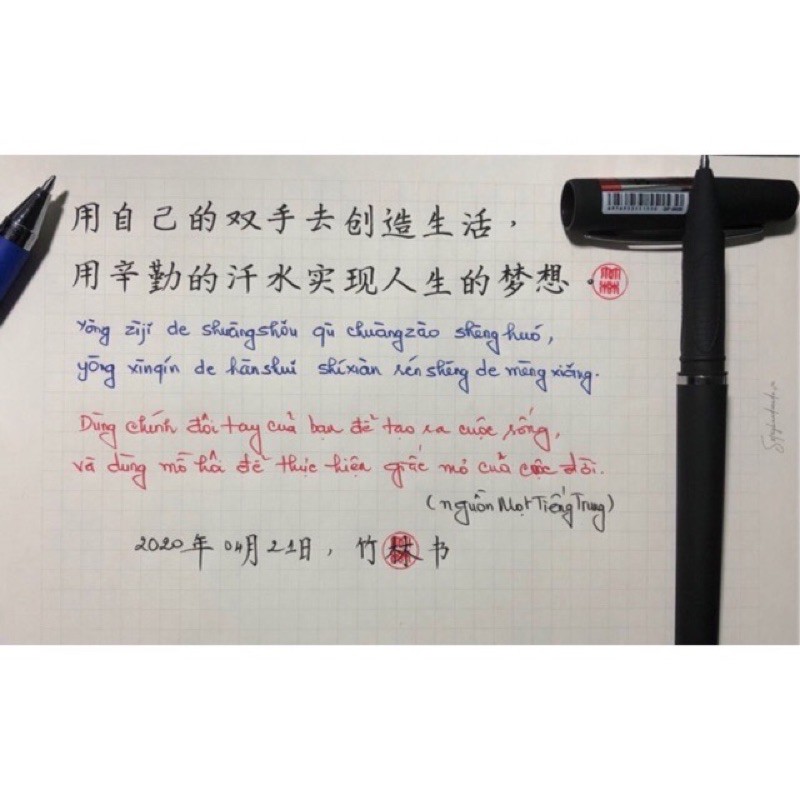 用自己的双手去创造生活，
用辛勤的汗水实现人生的梦想．
yòng zìjǐ de shuāngshǒu qù chuàngzào shēnghuó,
yòng xīnqín de hànshuǐ shíxiàn rénshēng de mèngxiǎng.
Dùng chính đôi tay của bạn để tạo ra cuộc sống,
và dùng mồ hôi để thực hiện giấc mơ của cuộc đời.
(nguồn Mọt Tiếng Trung)
2020年04月21日，竹林书